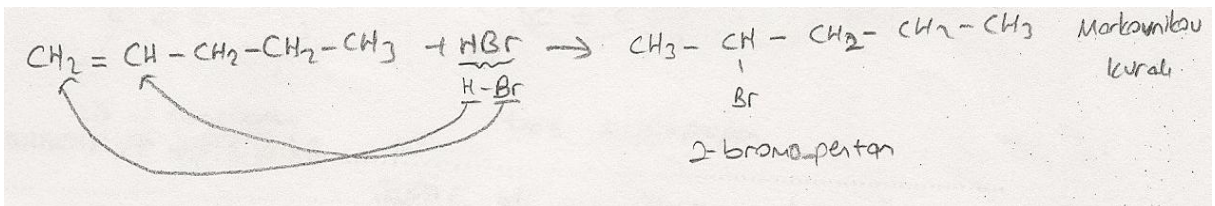 CH₂ = CH – CH₂ – CH₂ – CH₃ + HBr → CH₃ – CH – CH₂ – CH₂ – CH₃ Markovnikov
H – Br | kuralı.
Br
2-bromo pentan